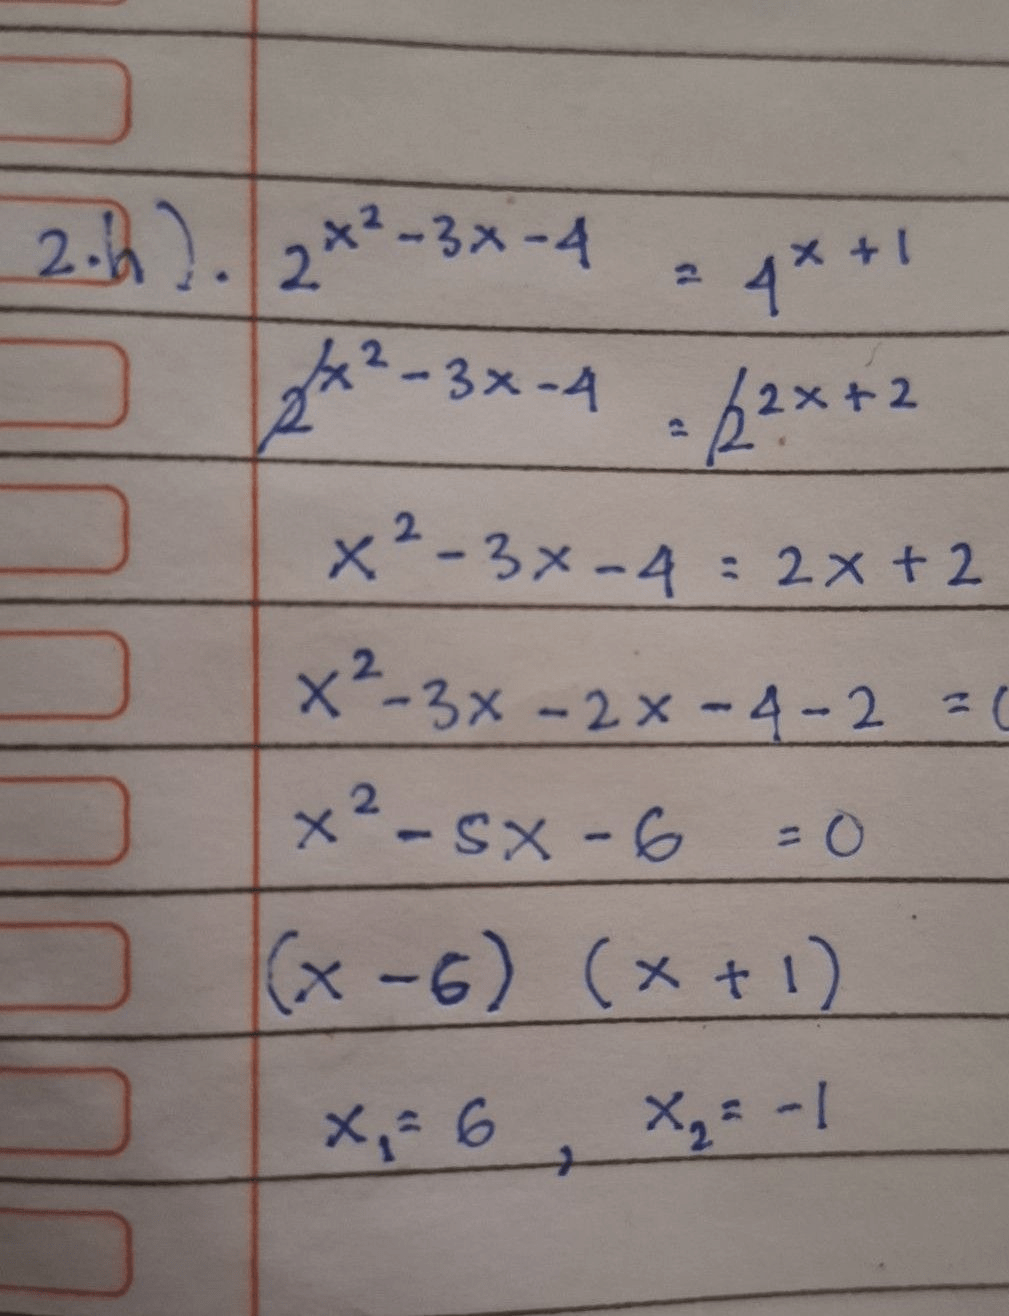 2.h). 2^{x² - 3x - 4} = 4^{x + 1}
2^{x² - 3x - 4} = 2^{2x + 2}
x² - 3x - 4 = 2x + 2
x² - 3x - 2x - 4 - 2 = 0
x² - 5x - 6 = 0
(x - 6) (x + 1)
x₁ = 6 , x₂ = -1